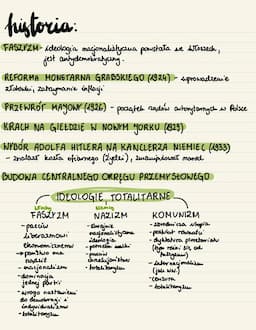 historia:
FASZYZM - ideologia nacjonalistyczna powstała we Włoszech,
jest antydemokratyczny.
REFORMA MONETARNA GRABSKIEGO (1924) - wprowadzenie
złotówki, zatrzymanie inflacji
PRZEWRÓT MAJOWY (1926) - początek rządów autorytarnych w Polsce
KRACH NA GIEŁDZIE W NOWYM YORKU (1929)
WYBÓR ADOLFA HITLERA NA KANCLERZA NIEMIEC (1933)
- znalazł kozła ofiarnego (Żydzi),
BUDOWA CENTRALNEGO OKRĘGU PRZEMYSŁOWEGO
IDEOLOGIE TOTALITARNE
Włochy
FASZYZM
- przeciw
liberalizmowi
ekonomicznemu
- państwo ma
nadzór
- nacjonalizm
- dominacja
jednej partii
- wrogo nastawieni
do demokracji i
indywidualizmu
- totalitaryzm
Niemcy
NAZIZM
- skrajnie
nacjonalistyczna
ideologia
- potomka
- przeciw
- totalitaryzm
KOMUNIZM
- dyktatura proletariatu
- internacjonalizm
- cenzura
- totalitaryzm